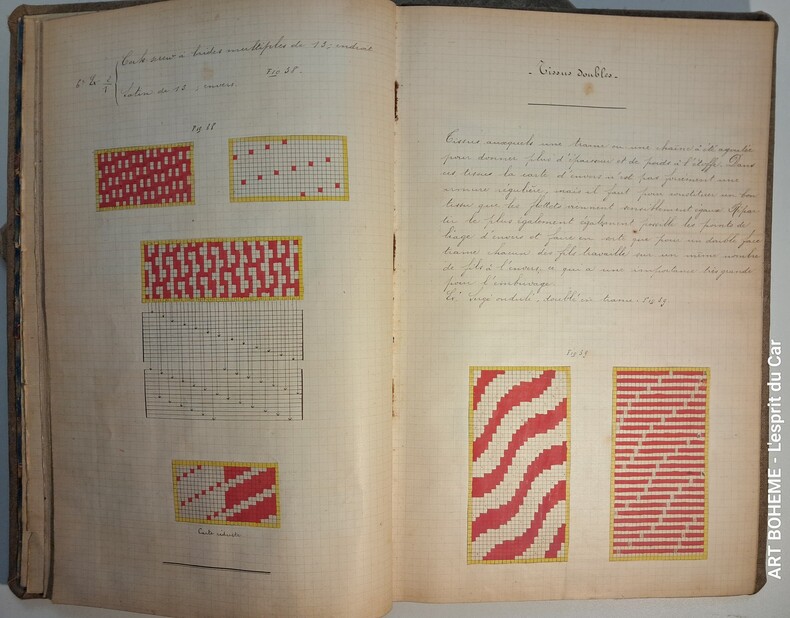 6e Ex. 2/1 Carte screw à brides multiples de 13, endroit
Satin de 13 - envers.
Fig 38.
Fig 38
Carte réduite
- Tissus doubles. -
Tissus auxquels une trame ou une chaîne a été ajoutée
pour donner plus d'épaisseur et de poids à l'étoffe. Dans
ces tissus la carte d'envers n'est pas forcément une
armure régulière, mais il faut pour constituer un bon
tissu que les flottés viennent
le plus également également possible les points de
liage d'envers et faire en sorte que pour un double face
trame chacun des fils travaille sur un même nombre
de fils à l'envers, ce qui a une importance très grande
pour l'embuvage.
Ex. Sergé ondulé - doublé en trame - Fig 39
Fig 39
ART BOHEME - L'esprit du Car